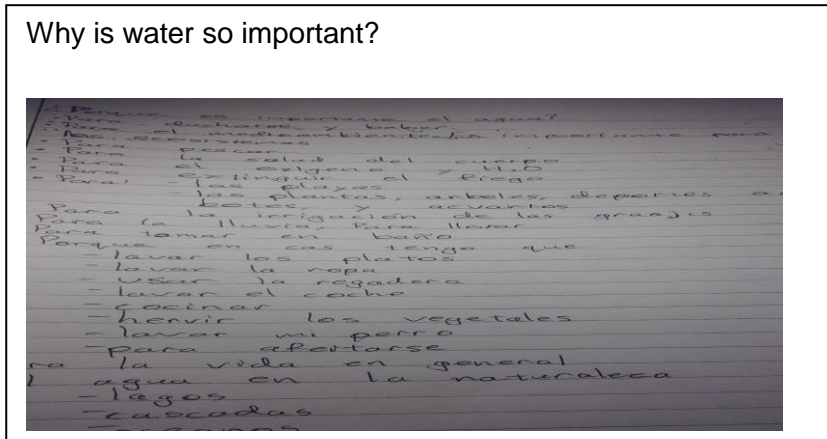 Why is water so important?
¿Porque es importante el agua?
- Para ducharse y beber.
el medioambiente es importante para
los ecosistemas
- Para pescar
- Para la salud del cuerpo
- Para el oxigeno y H₂O
- Para extinguir el fiego
- Para: - las playas
- las plantas, arbeles, deportes
botes, y acuarios
Para la irrigación de las graajas
Para la lluvia, Para llorar
Para tomar en baño
Porque en cas tengo que
- lavar los platos
- lavar la ropa
- usar la regadera
- lavar el coche
- cocinar
- hervir los vegetales
- lavar mi perro
- para afeitarse
ra la vida en general
l agua en la naturaleca
- lagos
- cascadas